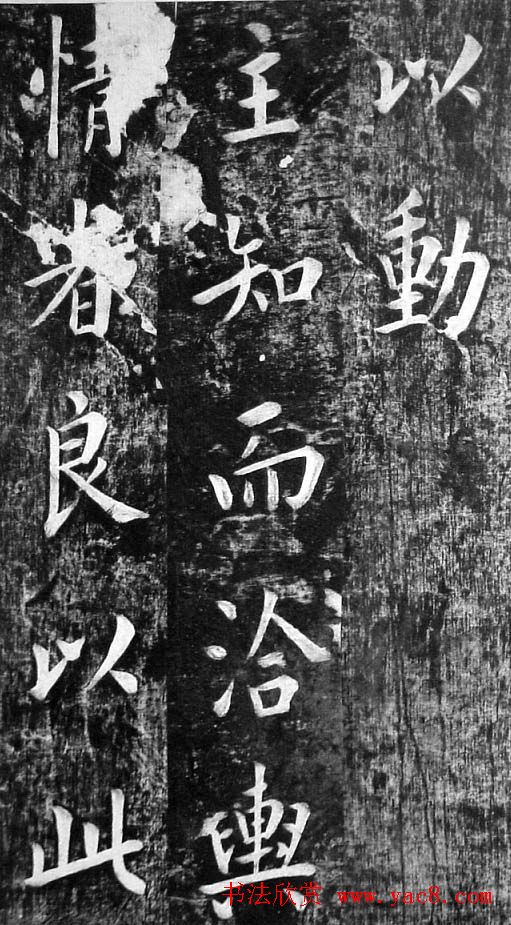 以動
主知而洽輿
情者良以此
书法欣赏 www.yac8.com